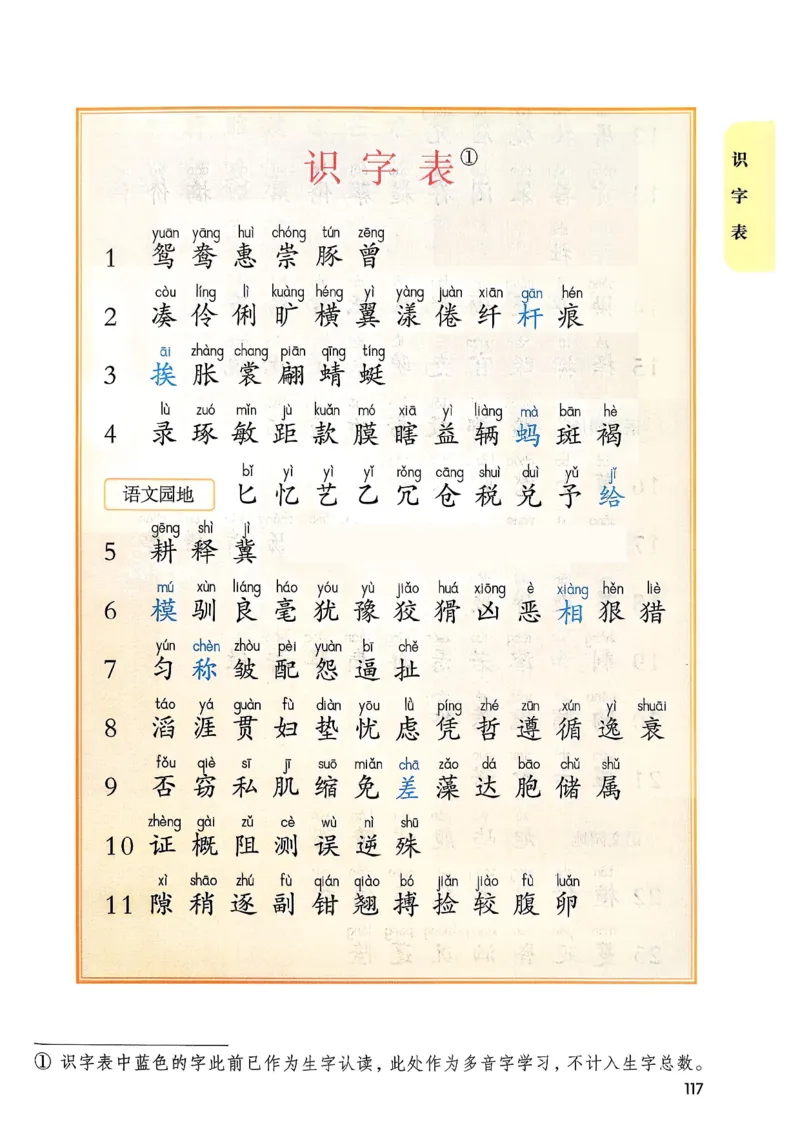 识字表①
识字表
yuān yāng huì chóng tún zēng
1 鸳 鸯 惠 崇 豚 曾
còu líng lì kuàng héng yì yàng juàn xiān gān hén
2 凑 伶 俐 旷 横 翼 漾 倦 纤 杆 痕
āi zhàng chang piān qīng tíng
3 挨 胀 裳 翩 蜻 蜓
lù zuó mǐn jù kuǎn mó xiā yì liàng mà bān hè
4 录 琢 敏 距 款 膜 瞎 益 辆 蚂 斑 褐
bǐ yì yì yǐ rǒng cāng shuì duì yǔ jǐ
语文园地 匕 忆 艺 乙 冗 仓 税 兑 予 给
gēng shì jì
5 耕 释 冀
mú xùn liáng háo yóu yù jiǎo huá xiōng è xiàng hěn liè
6 模 驯 良 毫 犹 豫 狡 猾 凶 恶 相 狠 猎
yún chèn zhòu pèi yuàn bī chě
7 匀 称 皱 配 怨 逼 扯
táo yá guàn fù diàn yōu lǜ píng zhé zūn xún yì shuāi
8 滔 涯 贯 妇 垫 忧 虑 凭 哲 遵 循 逸 衰
fǒu qiè sī jī suō miǎn chā zǎo dá bāo chǔ shǔ
9 否 窃 私 肌 缩 免 差 藻 达 胞 储 属
zhèng gài zǔ cè wù nì shū
10 证 概 阻 测 误 逆 殊
xì shāo zhú fù qián qiào bó jiǎn jiào fù luǎn
11 隙 稍 逐 副 钳 翘 搏 捡 较 腹 卵
① 识字表中蓝色的字此前已作为生字认读，此处作为多音字学习，不计入生字总数。
117